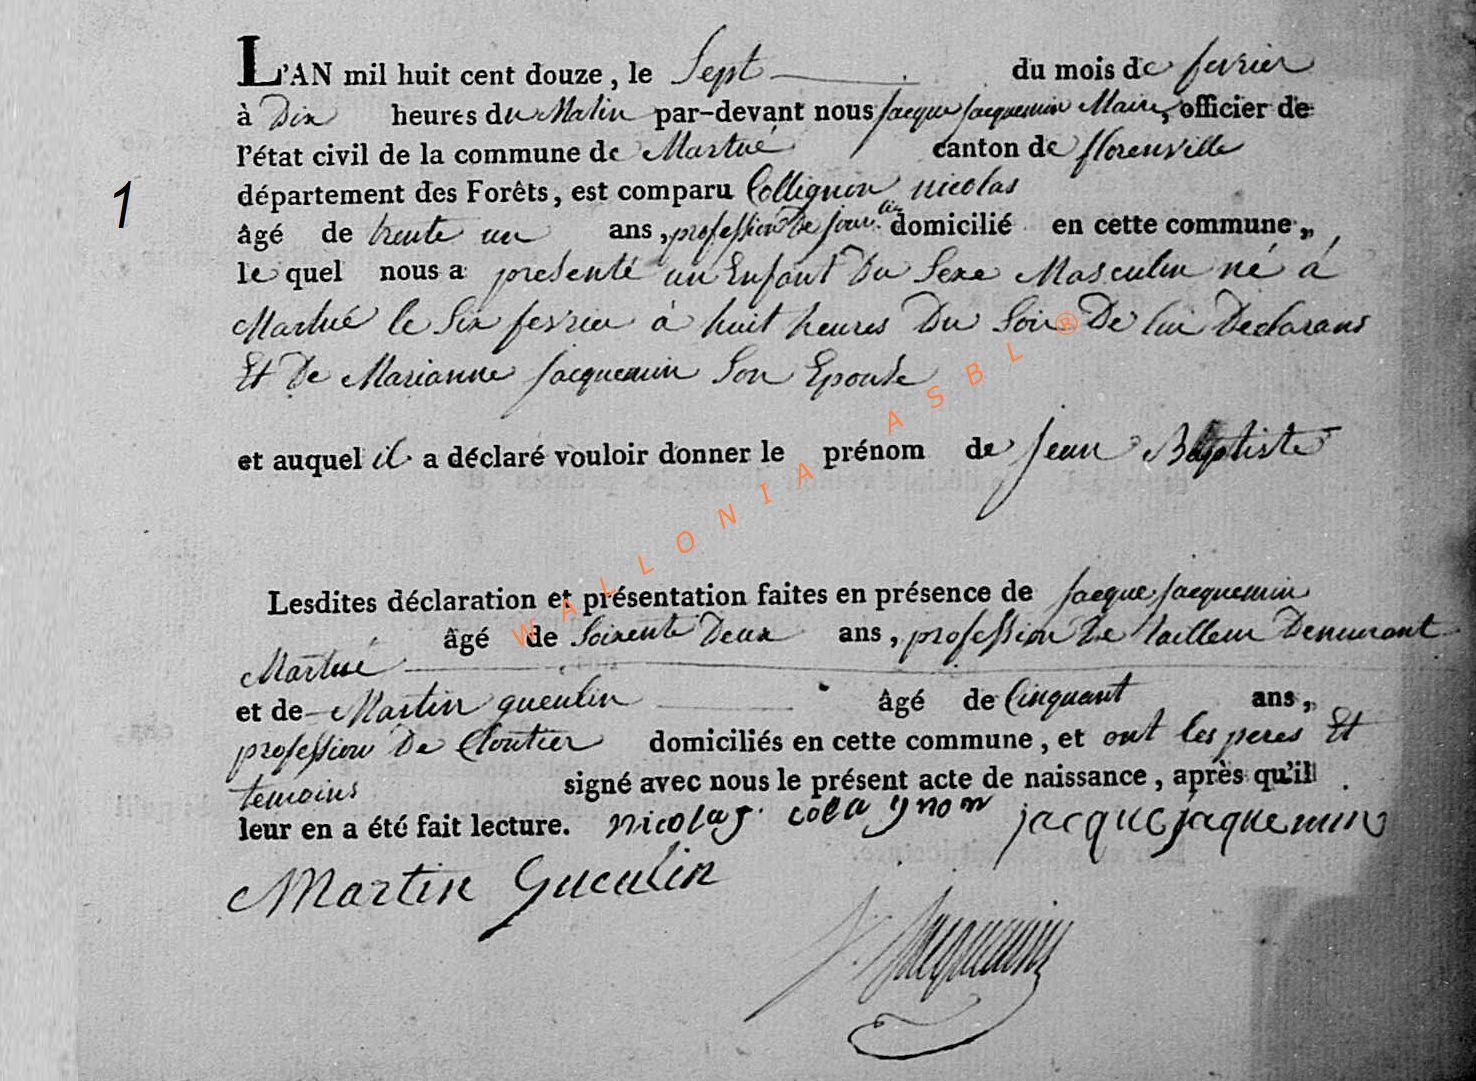 1
L'AN mil huit cent douze, le Sept du mois de fevrier
à Dix heures du Matin par-devant nous jacque jacquemin Maire, officier de
l'état civil de la commune de Martué canton de florenville
département des Forêts, est comparu Collignon nicolas
âgé de trente un ans, profession De jour. lier domicilié en cette commune,,
le quel nous a presenté un Enfant Du Sexe Masculin né à
Martué le Six fevrier à huit heures Du Soir De lui Declarans
Et De Marianne jacquemin Son Epouse
et auquel il a déclaré vouloir donner le prénom de jean Baptiste
Lesdites déclaration et présentation faites en présence de jacque jacquemin
âgé de Soixente Deux ans, profession De tailleur Demeurant
Martué
et de Martin gueulin âgé de Cinquant ans,,
profession De Cloutier domiciliés en cette commune, et ont les peres Et
temoins signé avec nous le présent acte de naissance, après qu'il
leur en a été fait lecture. nicolas colaygnon jacque jaquemin
Martin Gueulin
j. Jacquemin
WALLONIA ASBL ®